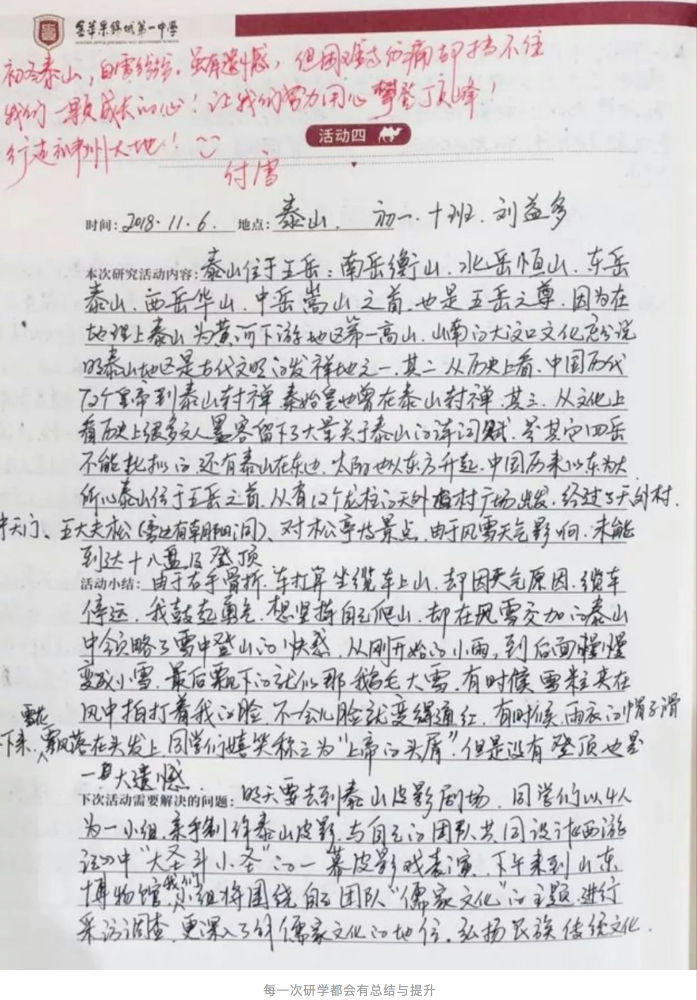 金苹果锦城第一中学
初冬泰山，白雪纷纷。虽有遗憾，但困难与伤痛却挡不住
我们一颗成长的心！让我们努力用心攀登顶峰！
行走神州大地！
付雪
活动四
时间：2018.11.6. 地点：泰山. 初一.十班.刘益多
本次研究活动内容：泰山位于五岳：南岳衡山.北岳恒山.东岳
泰山.西岳华山.中岳嵩山之首.也是五岳之尊.因为在
地理上泰山为黄河下游地区第一高山.山南的大汶口文化充分说
明泰山地区是古代文明的发祥地之一.其二从历史上看.中国历代
72个皇帝到泰山封禅 秦始皇也曾在泰山封禅.其三.从文化上
看历史上很多文人墨客留下了大量关于泰山的诗词赋.是其它四岳
不能比拟的 还有泰山在东边.太阳也从东方升起.中国历来以东为大
所以泰山位于五岳之首.从有12个龙柱的天外村广场出发.经过了天外村.
中天门、五大夫松(旁边有朝阳洞)、对松亭等景点.由于风雪天气影响.未能
到达十八盘及登顶
活动小结：由于右手骨折.本打算坐缆车上山.却因天气原因.缆车
停运.我鼓起勇气.想坚持自己爬山.却在风雪交加的泰山
中领略了雪中登山的快感.从刚开始的小雨,到后面慢慢
变成小雪.最后飘下的就似那鹅毛大雪.有时候雪粒夹在
风中拍打着我的脸.不一会儿脸就变得通红.有时候.雨衣的帽子滑
下来.雪花飘落在头发上.同学们嬉笑称之为"上帝的头屑".但是没有登顶也是
一大遗憾.
下次活动需要解决的问题：明天要去到泰山皮影剧场.同学们以4人
为一小组.亲手制作泰山皮影.与自己的团队共同设计西游
记中"大圣斗小圣"的一幕皮影戏表演.下午来到山东
博物馆我们小组将围绕自己团队"儒家文化"的主题.进行
采访调查.更深入了解儒家文化的地位.弘扬民族传统文化.
每一次研学都会有总结与提升